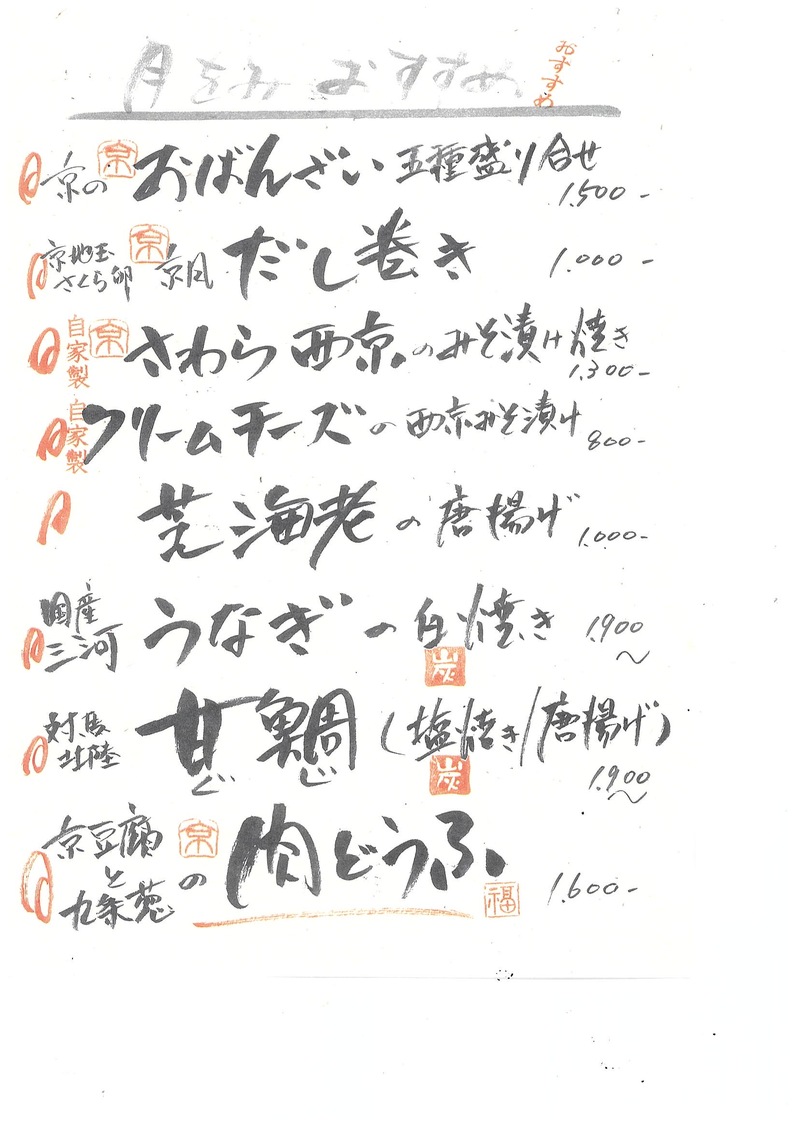 月をみ おすすめ おすすめ
京の 京 おばんざい 五種盛り合せ
1.500-
京地玉
さくら卵 京 京風 だし巻き 1.000-
自家製 京 さわら西京のみそ漬け焼き
1.300-
自家製 クリームチーズの西京みそ漬け 800-
芝海老の唐揚げ 1.000-
国産
三河 うなぎの白焼き 1.900~
炭
対馬
北陸 甘鯛 (塩焼き/唐揚げ)
ぐじ 炭 1.900~
京豆腐
と
九条葱 の 京 肉どうふ 福 1.600-